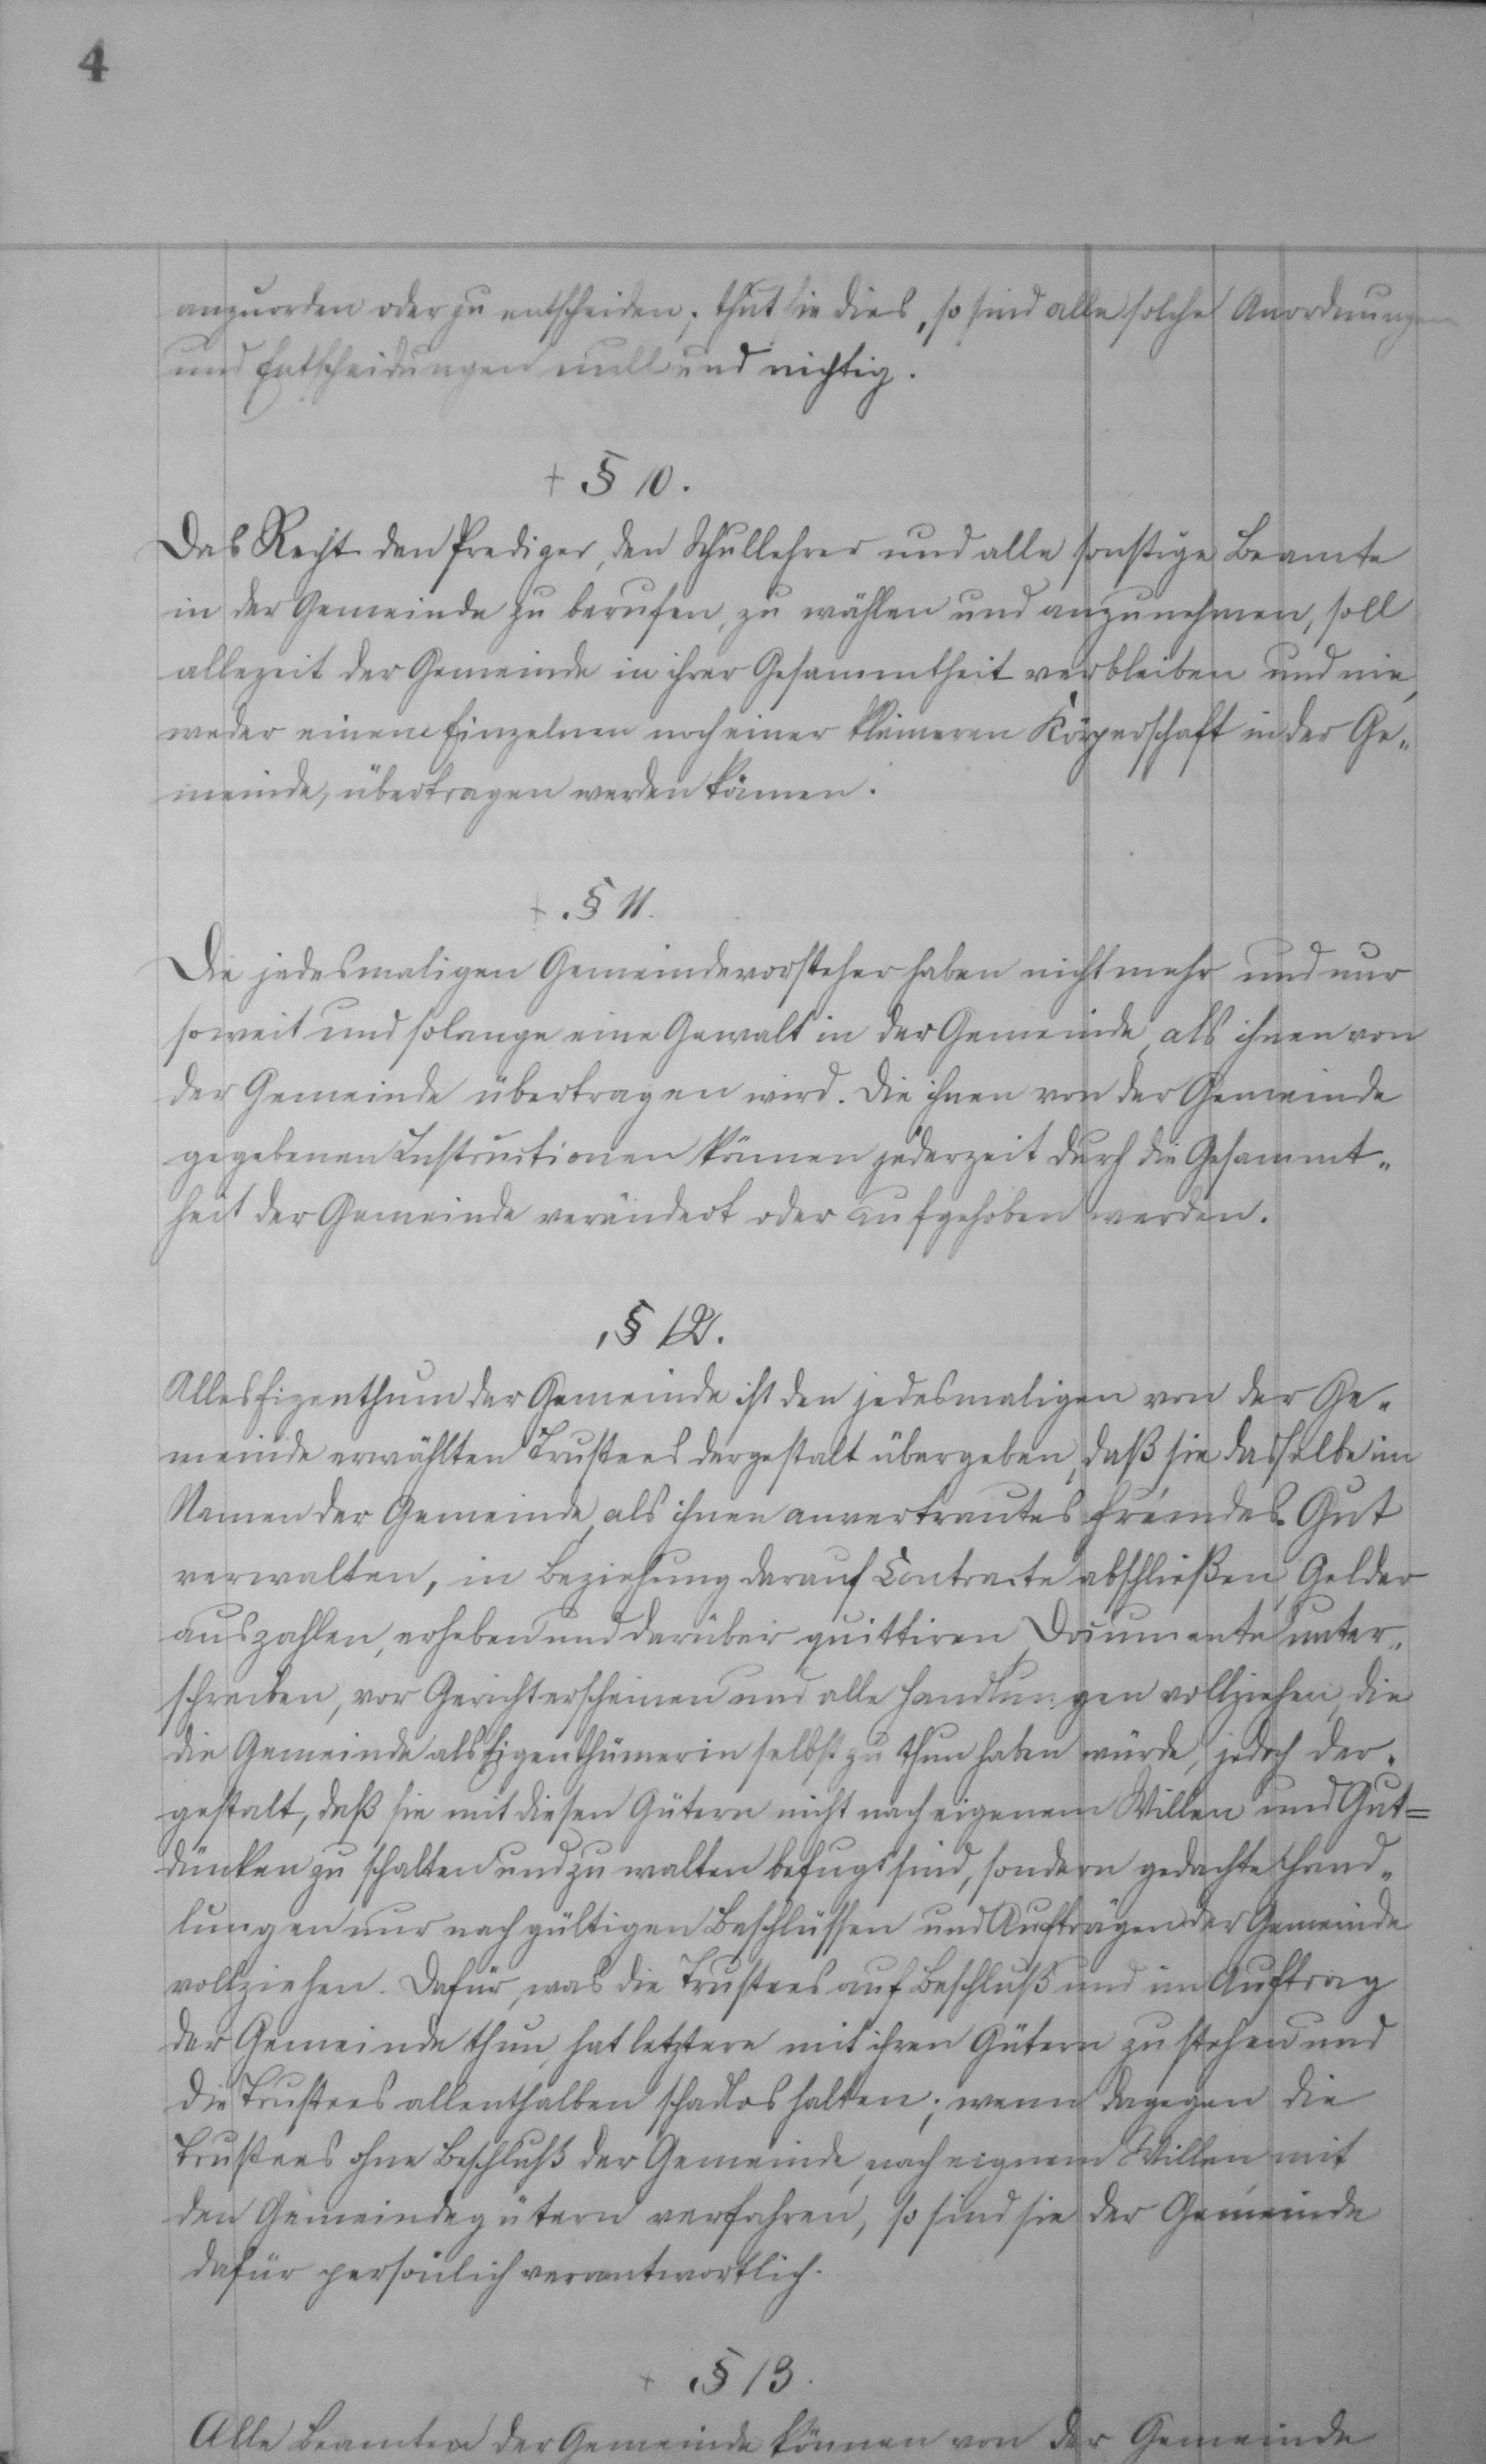 4
anzuorden oder zu entscheiden; thut sie dies, so sind alle solche Anordnungen
und Entscheidungen null und nichtig.
+ § 10.
Das Recht den Prediger, den Schullehrer und alle sonstige Beamte
in der Gemeinde zu berufen, zu wählen und anzunehmen, soll
allezeit der Gemeinde in ihrer Gesammtheit verbleiben und nie,
weder einem Einzelnen noch einer kleineren Körperschaft in der Ge„
meinde, übertragen werden können.
+ . § 11.
Die jedesmaligen Gemeindevorsteher haben nicht mehr und nur
soweit und solange eine Gewalt in der Gemeinde, als ihnen von
der Gemeinde übertragen wird. Die ihnen von der Gemeinde
gegebenen Instructionen können jederzeit durch die Gesammt„
heit der Gemeinde verändert oder aufgehoben werden.
. § 12.
Alles Eigenthum der Gemeinde ist den jedesmaligen von der Ge„
meinde erwählten Trustees dergestalt übergeben, daß sie dasselbe im
Namen der Gemeinde, als ihnen anvertrautes fremdes Gut
verwalten, in Beziehung darauf Contracte abschließen, Gelder
auszahlen, erheben und darüber quittiren, Documente unter„
schreiben, vor Gericht erscheinen und alle Handlungen vollziehen, die
die Gemeinde als Eigenthümerin selbst zu thun haben würde, jedoch der„
gestalt, daß sie mit diesen Gütern nicht nach eigenem Willen und Gut=
dünken zu schalten und zu walten befugt sind, sondern gedachte Hand„
lungen nur nach gültigen Beschlüssen und Aufträgen der Gemeinde
vollziehen. Dafür, was die Trustees auf Beschluß und im Auftrag
der Gemeinde thun, hat letztere mit ihren Gütern zu stehen und
die Trustees allenthalben schadlos halten; wenn dagegen die
Trustees ohne Beschluß der Gemeinde, nach eignem Willen mit
den Gemeindegütern verfahren, so sind sie der Gemeinde
dafür persönlich verantwortlich.
+ . § 13.
Alle Beamten der Gemeinde können von der Gemeinde